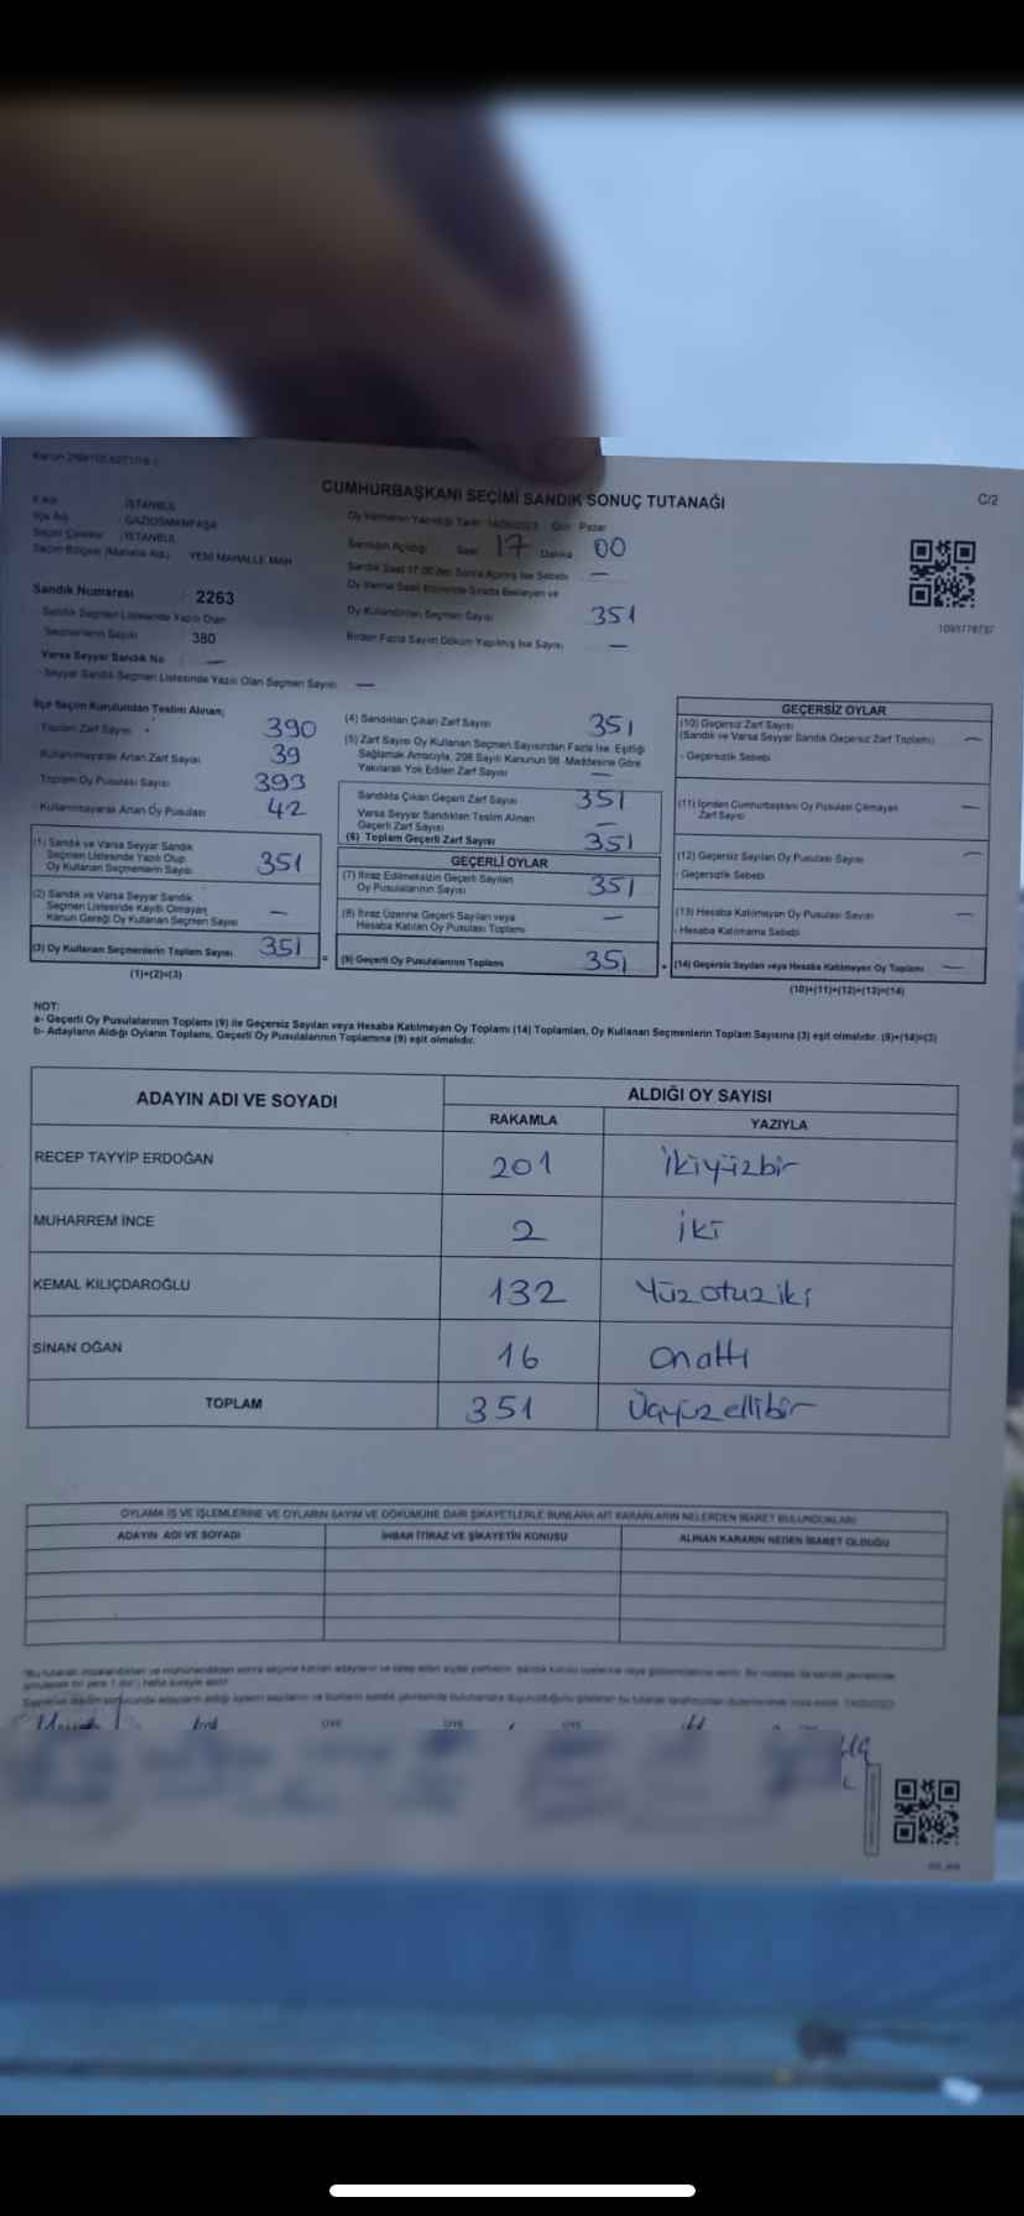 CUMHURBAŞKANI SEÇİMİ SANDIK SONUÇ TUTANAĞI
C/2
İSTANBUL
GAZİOSMANPAŞA
İSTANBUL
YENİ MAHALLE MAH
Pazar
Saat 17 Dakika 00
Sandık Numarası 2263
Oy Kullandırılan Seçmen Sayısı 351
Sandık Seçmen Listesinde Yazılı Olan
Seçmenlerin Sayısı 380
Birden Fazla Sayım Döküm Yapılmış İse Sayısı —
Varsa Seyyar Sandık No —
Seyyar Sandık Seçmen Listesinde Yazılı Olan Seçmen Sayısı —
İlçe Seçim Kurulundan Teslim Alınan;
Yazılan Zarf Sayısı 390
Kullanılmayarak Artan Zarf Sayısı 39
Toplam Oy Pusulası Sayısı 393
Kullanılmayarak Artan Oy Pusulası 42
(1) Sandık ve Varsa Seyyar Sandık
Seçmen Listesinde Yazılı Olup
Oy Kullanan Seçmenlerin Sayısı 351
(2) Sandık ve Varsa Seyyar Sandık
Seçmen Listesinde Kaydı Olmayan
Kanun Gereği Oy Kullanan Seçmen Sayısı —
(3) Oy Kullanan Seçmenlerin Toplam Sayısı 351
(1)+(2)=(3)
(4) Sandıktan Çıkan Zarf Sayısı 351
(5) Zarf Sayısı Oy Kullanan Seçmen Sayısından Fazla İse, Eşitliği
Sağlamak Amacıyla, 298 Sayılı Kanunun 98. Maddesine Göre
Yakılarak Yok Edilen Zarf Sayısı —
Sandıkta Çıkan Geçerli Zarf Sayısı 351
Varsa Seyyar Sandıktan Teslim Alınan
Geçerli Zarf Sayısı —
(6) Toplam Geçerli Zarf Sayısı 351
GEÇERLİ OYLAR
(7) İtiraz Edilmeksizin Geçerli Sayılan
Oy Pusulalarının Sayısı 351
(8) İtiraz Üzerine Geçerli Sayılan veya
Hesaba Katılan Oy Pusulası Toplamı —
(9) Geçerli Oy Pusulalarının Toplamı 351
GEÇERSİZ OYLAR
(10) Geçersiz Zarf Sayısı
(Sandık ve Varsa Seyyar Sandık Geçersiz Zarf Toplamı) —
- Geçersizlik Sebebi
(11) İçinden Cumhurbaşkanı Oy Pusulası Çıkmayan
Zarf Sayısı —
(12) Geçersiz Sayılan Oy Pusulası Sayısı —
- Geçersizlik Sebebi
(13) Hesaba Katılmayan Oy Pusulası Sayısı —
- Hesaba Katılmama Sebebi
(14) Geçersiz Sayılan veya Hesaba Katılmayan Oy Toplamı —
(10)+(11)+(12)+(13)=(14)
NOT:
a- Geçerli Oy Pusulalarının Toplamı (9) ile Geçersiz Sayılan veya Hesaba Katılmayan Oy Toplamı (14) Toplamları, Oy Kullanan Seçmenlerin Toplam Sayısına (3) eşit olmalıdır. (9)+(14)=(3)
b- Adayların Aldığı Oyların Toplamı, Geçerli Oy Pusulalarının Toplamına (9) eşit olmalıdır.
ADAYIN ADI VE SOYADI
ALDIĞI OY SAYISI
RAKAMLA YAZIYLA
RECEP TAYYİP ERDOĞAN 201 ikiyüzbir
MUHARREM İNCE 2 iki
KEMAL KILIÇDAROĞLU 132 Yüzotuziki
SİNAN OĞAN 16 onaltı
TOPLAM 351 Üçyüzellibir
OYLAMA İŞ VE İŞLEMLERİNE VE OYLARIN SAYIM VE DÖKÜMÜNE DAİR ŞİKAYETLERLE BUNLARA AİT KARARLARIN NELERDEN İBARET BULUNDUKLARI
ADAYIN ADI VE SOYADI
İHBAR İTİRAZ VE ŞİKAYETİN KONUSU
ALINAN KARARIN NEDEN İBARET OLDUĞU
ÜYE ÜYE ÜYE